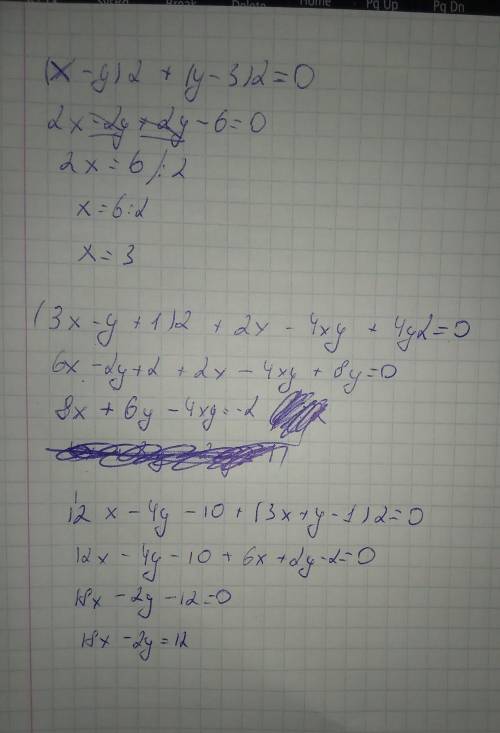 Home Pq Up Pq Dn
(x - y)2 + (y - 3)2 = 0
2x - 2y + 2y - 6 = 0
2x = 6 /: 2
x = 6 : 2
x = 3
(3x - y + 1)2 + 2x - 4xy + 4y2 = 0
6x - 2y + 2 + 2x - 4xy + 8y = 0
8x + 6y - 4xy = -2
12x - 4y - 10 + (3x + y - 1)2 = 0
12x - 4y - 10 + 6x + 2y - 2 = 0
18x - 2y - 12 = 0
18x - 2y = 12